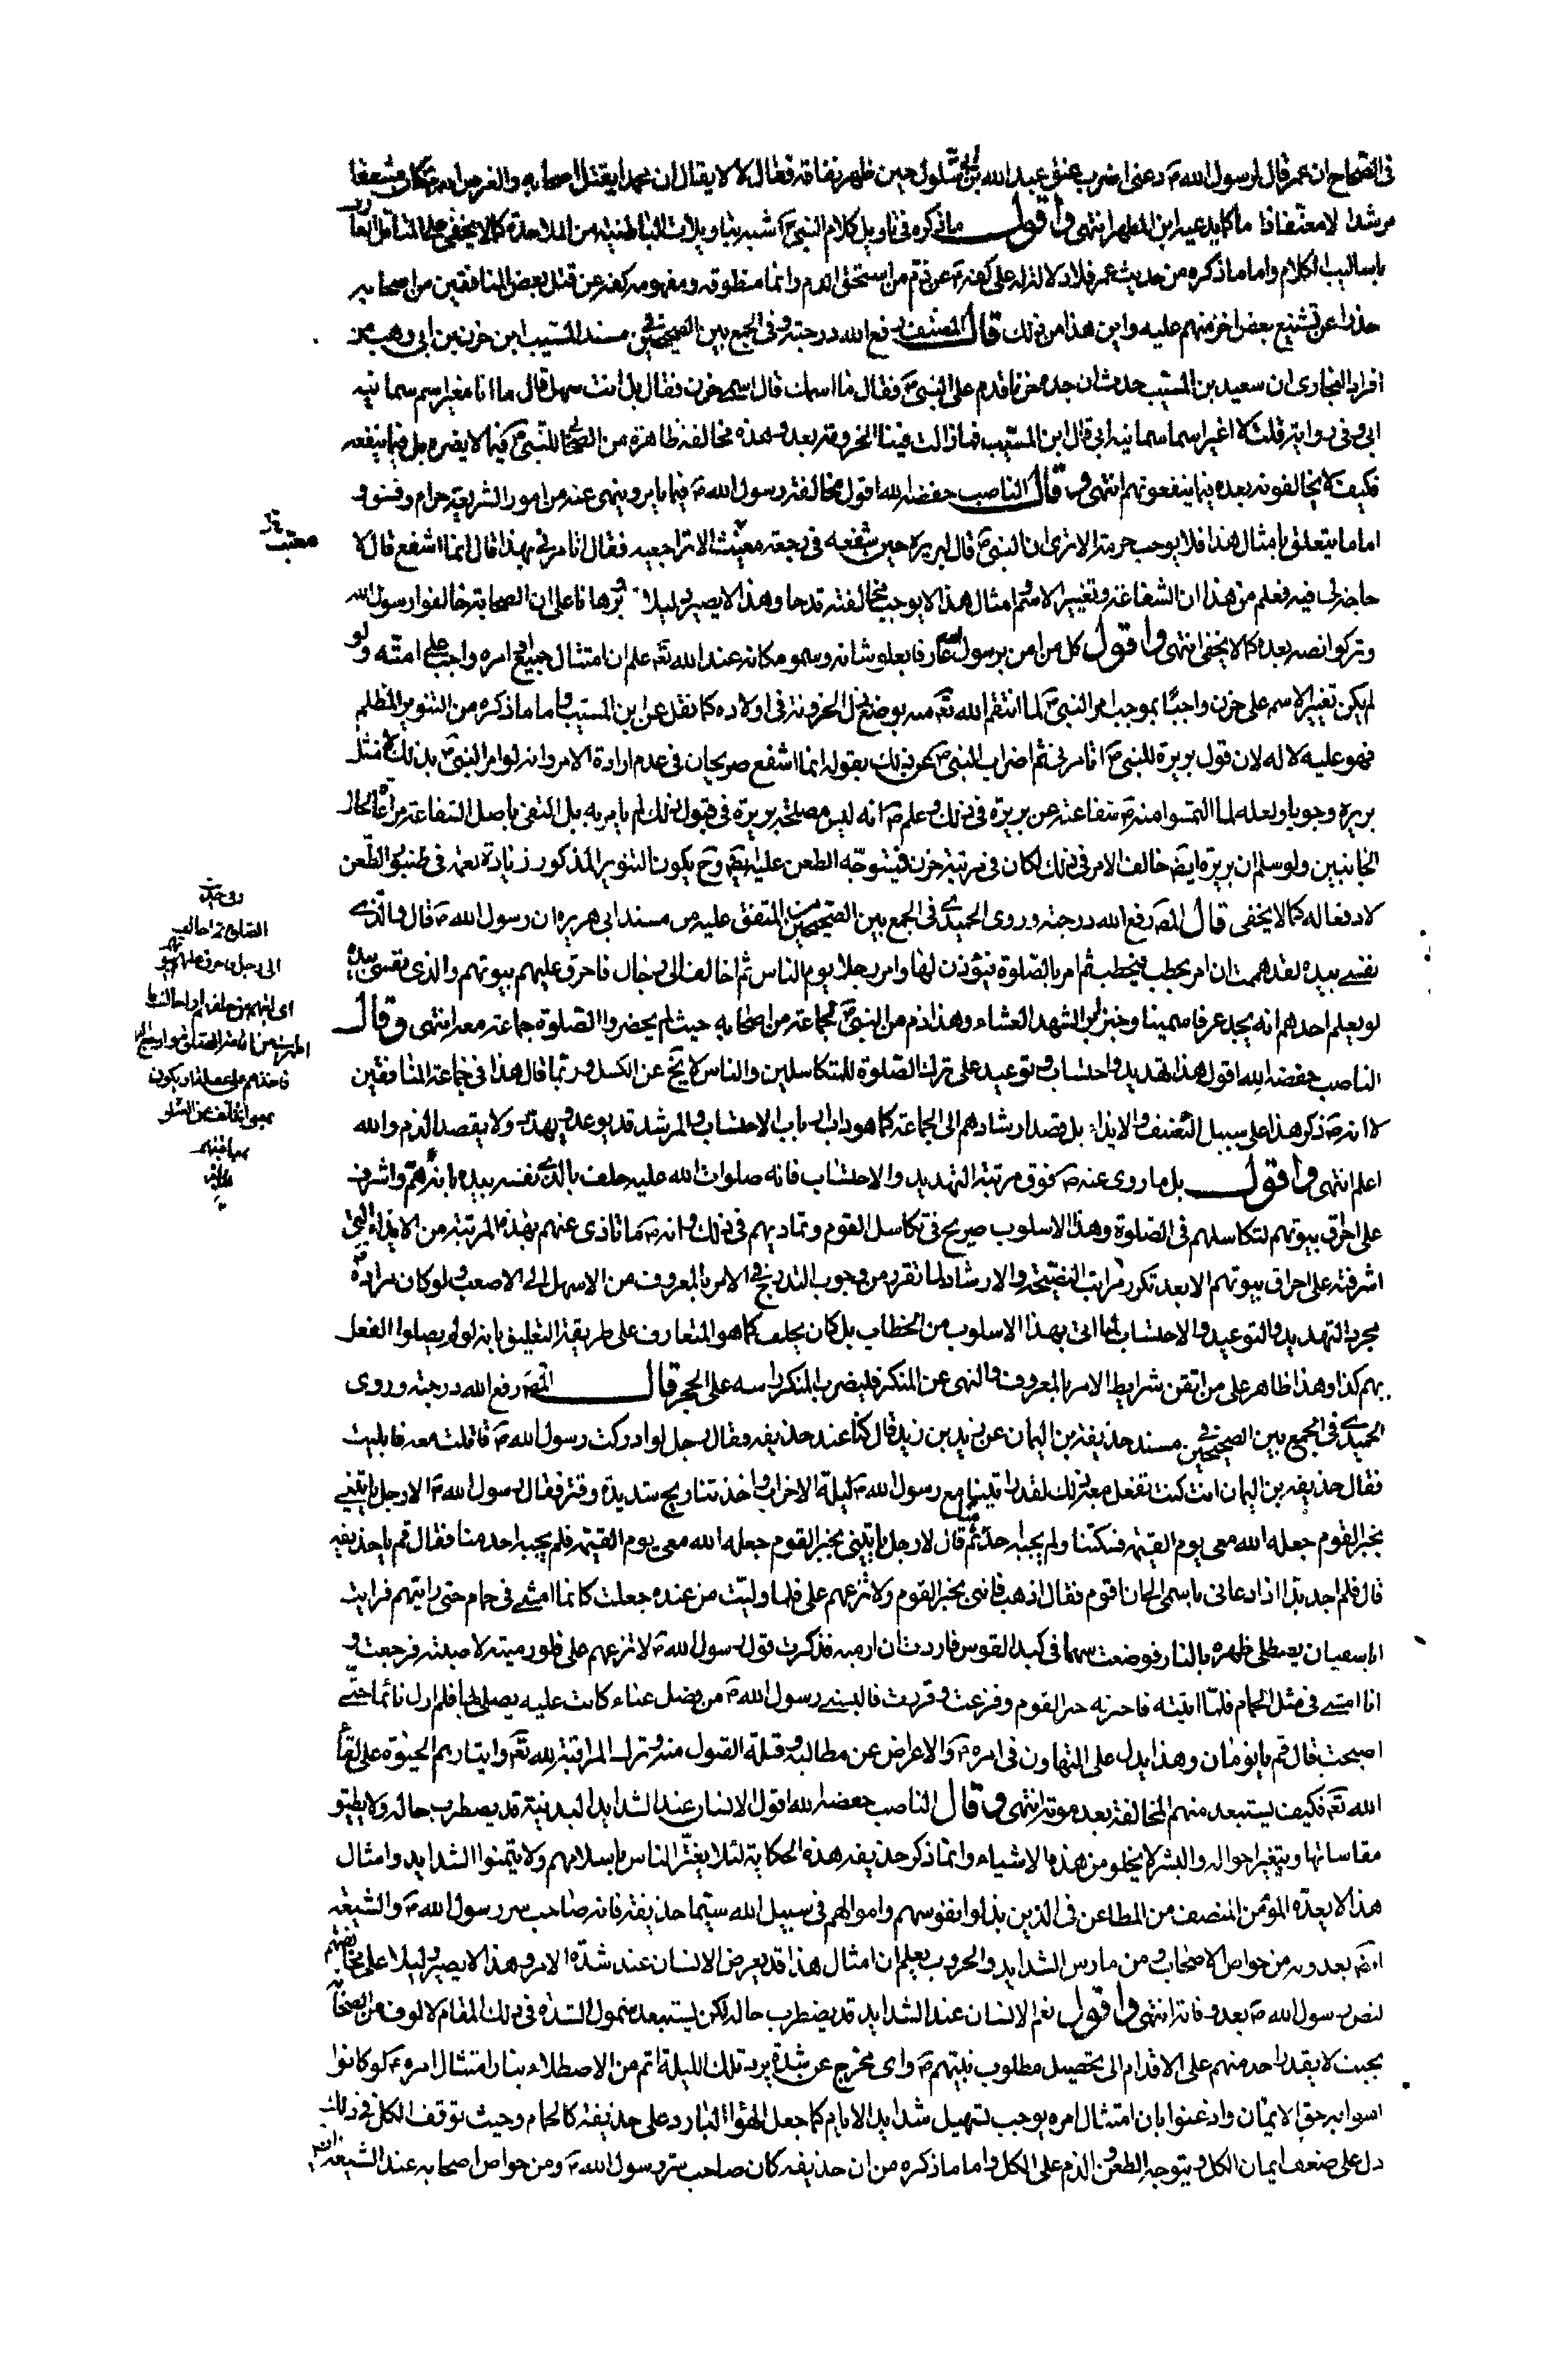 في الصحاح ان عمر قال لرسول الله ص دعني اضرب عنق عبد الله بن ابي سلول حين ظهر نفاقه فقال لا لا يقال ان محمدا يقتل اصحابه والغرض انه ص كان مشفقا
مرشدا لا معنفا كما يدعيه ابن المطهر انتهى واقول ما ذكره في تاويل كلام النبي ص اشبه بتاويلات الباطنية من الملاحدة كما لا يخفى على المتامل العارف
باساليب الكلام واما ما ذكره من حديث عمر فلا دلالة له على كفه ص عن ذم من استحق الذم وانما منطوقه ومفهومه كفه عن قتل بعض المنافقين من اصحابه
حذرا عن تشنيع بعض اخر منهم عليه واين هذا من ذلك قال المصنف رفع الله درجته وفي الجمع بين الصحيحين في مسند المسيب ابن حزن بن ابي وهب من
افراد البخاري ان سعيد بن المسيب حدث ان جده حزنا قدم على النبي ص فقال ما اسمك قال اسمي حزن فقال بل انت سهل قال ما انا مغير اسم سمانيه
ابي وفي رواية قلت لا اغير اسما سمانيه ابي قال ابن المسيب فما زالت فينا الحزونة بعد وهذه مخالفة ظاهرة من الصحابي للنبي ص فيما لا يضره بل فيما ينفعه
فكيف لا يخالفونه بعده فيما ينفعهم انتهى وقال الناصب خفضه الله اقول مخالفة رسول الله ص فيما يامر وينهى عنه من امور الشريعة حرام وفسق و
اما ما يتعلق بامثال هذا فلا يوجب حرمة الا ترى ان النبي ص قال لبريرة حين شفعه في رجعة مغيث الا تراجعيه فقال اتامرني بهذا قال انما اشفع قال لا
حاجة لي فيه فعلم من هذا ان الشفاعة وتغيير الاسم وامثال هذا لا يوجب مخالفته قدحا وهذا لا يصير دليلا وبرهانا على ان الصحابة خالفوا رسول الله
وتركوا نصه بعده كما لا يخفى انتهى واقول كل من امن برسول الله عارفا بعلو شانه وسمو مكانه عند الله تعه علم ان امتثال جميع امره واجب على امته ولو
لم يكن تغيير الاسم على حزن واجبا بموجب امر النبي ص لما انتقم الله تعه منه بوضع ذل الحزونة في اولاده كما نقل عن ابن المسيب واما ما ذكره من التنوير المظلم
فهو عليه لا له لان قول بريرة للنبي ص اتامرني ثم اضراب النبي ص عن ذلك بقوله انما اشفع صريحان في عدم ارادة الامر وانه لو امر النبي ص بذلك لامتثل
بريره وجوبا ولعله لما التمسوا منه ص شفاعته عن بريرة في ذلك وعلم ص انه ليس مصلحة بريرة في قبول ذلك لم يامر به بل اتفى باصل الشفاعة مراعاة لحال
الجانبين ولو سلم ان بريرة ايضه خالف الامر في ذلك لكان في مرتبة حزن فيتوجه الطعن عليه ايضه وح يكون التنوير المذكور زيادة نغمة في طنبور الطعن
لا دفعا له كما لا يخفى قال المصه رفع الله درجته وروى الحميدي في الجمع بين الصحيحين من المتفق عليه من مسند ابي هريره ان رسول الله ص قال والذي
نفسي بيده لقد هممت ان امر بحطب فيحطب ثم امر بالصلوة فيؤذن لها وامر رجلا يؤم الناس ثم اخالف الى رجال فاحرق عليهم بيوتهم والذي نفسي بيده
لو يعلم احدهم انه يجد عرقا سمينا وخبزا لشهد العشاء وهذا ذم من النبي ص لجماعة من اصحابه حيث لم يحضروا الصلوة جماعة معه انتهى وقال
الناصب خفضه الله اقول هذا تهديد واحتساب وتوعيد على ترك الصلوة للمتكاسلين والناس لا يخ عن الكسل وربما قال هذا في جماعة المنافقين
لا انه ص ذكر هذا على سبيل التعنيف والايذاء بل قصد ارشادهم الى الجماعة كما هو داب ارباب الاحتساب والمرشد قد يوعد ويهدد ولا يقصد الذم والله
اعلم انتهى واقول بل ما روى عنه ص فوق مرتبة التهديد والاحتساب فانه صلوات الله عليه حلف بالذي نفسه بيده بانه هم واشرف
على احراق بيوتهم لتكاسلهم في الصلوة وهذا الاسلوب صريح في تكاسل القوم وتماديهم في ذلك وانه ص ما تاذى عنهم بهذه المرتبة من الايذاء التي
اشرفته على احراق بيوتهم الا بعد تكرر مراتب النصيحة والارشاد لما تقرر من وجوب التدريج في الامر بالمعروف من الاسهل الى الاصعب ولو كان مراده ص
مجرد التهديد والتوعيد والاحتساب لما اتى بهذا الاسلوب من الخطاب بل كان يحلف كما هو المتعارف على طريقة التعليق بانه لو لم يصلوا الفعل
بهم كذا وهذا ظاهر على من اتقن شرايط الامر بالمعروف والنهي عن المنكر فليضرب المنكر راسه على الحجر قال المصه رفع الله درجته وروى
الحميدي في الجمع بين الصحيحين في مسند حذيفة بن اليمان عن يزيد بن زيد قال كنا عند حذيفه فقال رجل لو ادركت رسول الله ص قاتلت معه فابليت
فقال حذيفه بن اليمان انت كنت تفعل معه ذلك لقد راتينا مع رسول الله ص ليلة الاحزاب واخذتنا ريح شديدة وقر فقال رسول الله ص الا رجل ياتيني
بخبر القوم جعله الله معي يوم القيمة فسكتنا ولم يجبه احد ثم قال الا رجل ياتيني بخبر القوم جعله الله معي يوم القيمة فلم يجبه احد منا فقال قم يا حذيفه
قال فلم اجد بدا اذ دعاني باسمي الا ان اقوم فقال اذهب فاتني بخبر القوم ولا تذعرهم علي فلما وليت من عنده جعلت كانما امشي في حمام حتى رايتهم فرايت
ابا سفيان يصطلي ظهره بالنار فوضعت سهما في كبد القوس فاردت ان ارميه فذكرت قول رسول الله ص لا تذعرهم علي فلو رميته لاصبته فرجعت و
انا امشي في مثل الحمام فلما اتيته فاخبرته خبر القوم وفرغت وقررت فالبسني رسول الله ص من فضل عباء كانت عليه يصلي فيها فلم ازل نائما حتى
اصبحت قال قم يا نومان وهذا يدل على التهاون في امره ص والاعراض عن مطالبه وقلة القبول منه وترك المراقبة لله تعه وايثارهم الحيوة على لقاء
الله تعه فكيف يستبعد منهم المخالفة بعد موته انتهى وقال الناصب خفضه الله اقول الانسان عند الشدايد البدنية قد يضطرب حاله ولا يطيق
مقاساتها ويتغير احواله والبشر لا يخلو من هذه الاشياء وانما ذكر حذيفه هذه الحكاية لئلا يغتر الناس باسلامهم ولا يتمنوا الشدايد وامثال
هذا لا يعده المؤمن المنصف من المطاعن في الذين بذلوا نفوسهم واموالهم في سبيل الله سيما حذيفة فانه صاحب سر رسول الله ص والشيعة
ايضه يعدونه من خواص الاصحاب ومن مارس الشدايد والحروب يعلم ان امثال هذا قد يعرض الانسان عند شدة الامر وهذا لا يصير دليلا على مخالفتهم
لنص رسول الله ص بعد وفاته انتهى واقول نعم الانسان عند الشدايد قد يضطرب حاله لكن يستبعد شمول الشدة في ذلك المقام لالوف من الصحابة
بحيث لا يقدر احد منهم على الاقدام الى تحصيل مطلوب نبيهم ص واي مخرج عن شدة برد تلك الليلة اتم من الاصطلاء بنار امتثال امره ص لو كانوا
امنوا به حق الايمان واذعنوا بان امتثال امره يوجب تسهيل شدايد الايام كما جعل الهواء البارد على حذيفة كالحمام وحيث توقف الكل في ذلك
دل على ضعف ايمان الكل ويتوجه الطعن والذم على الكل واما ما ذكره من ان حذيفه كان صاحب سر رسول الله ص ومن خواص اصحابه عند الشيعة